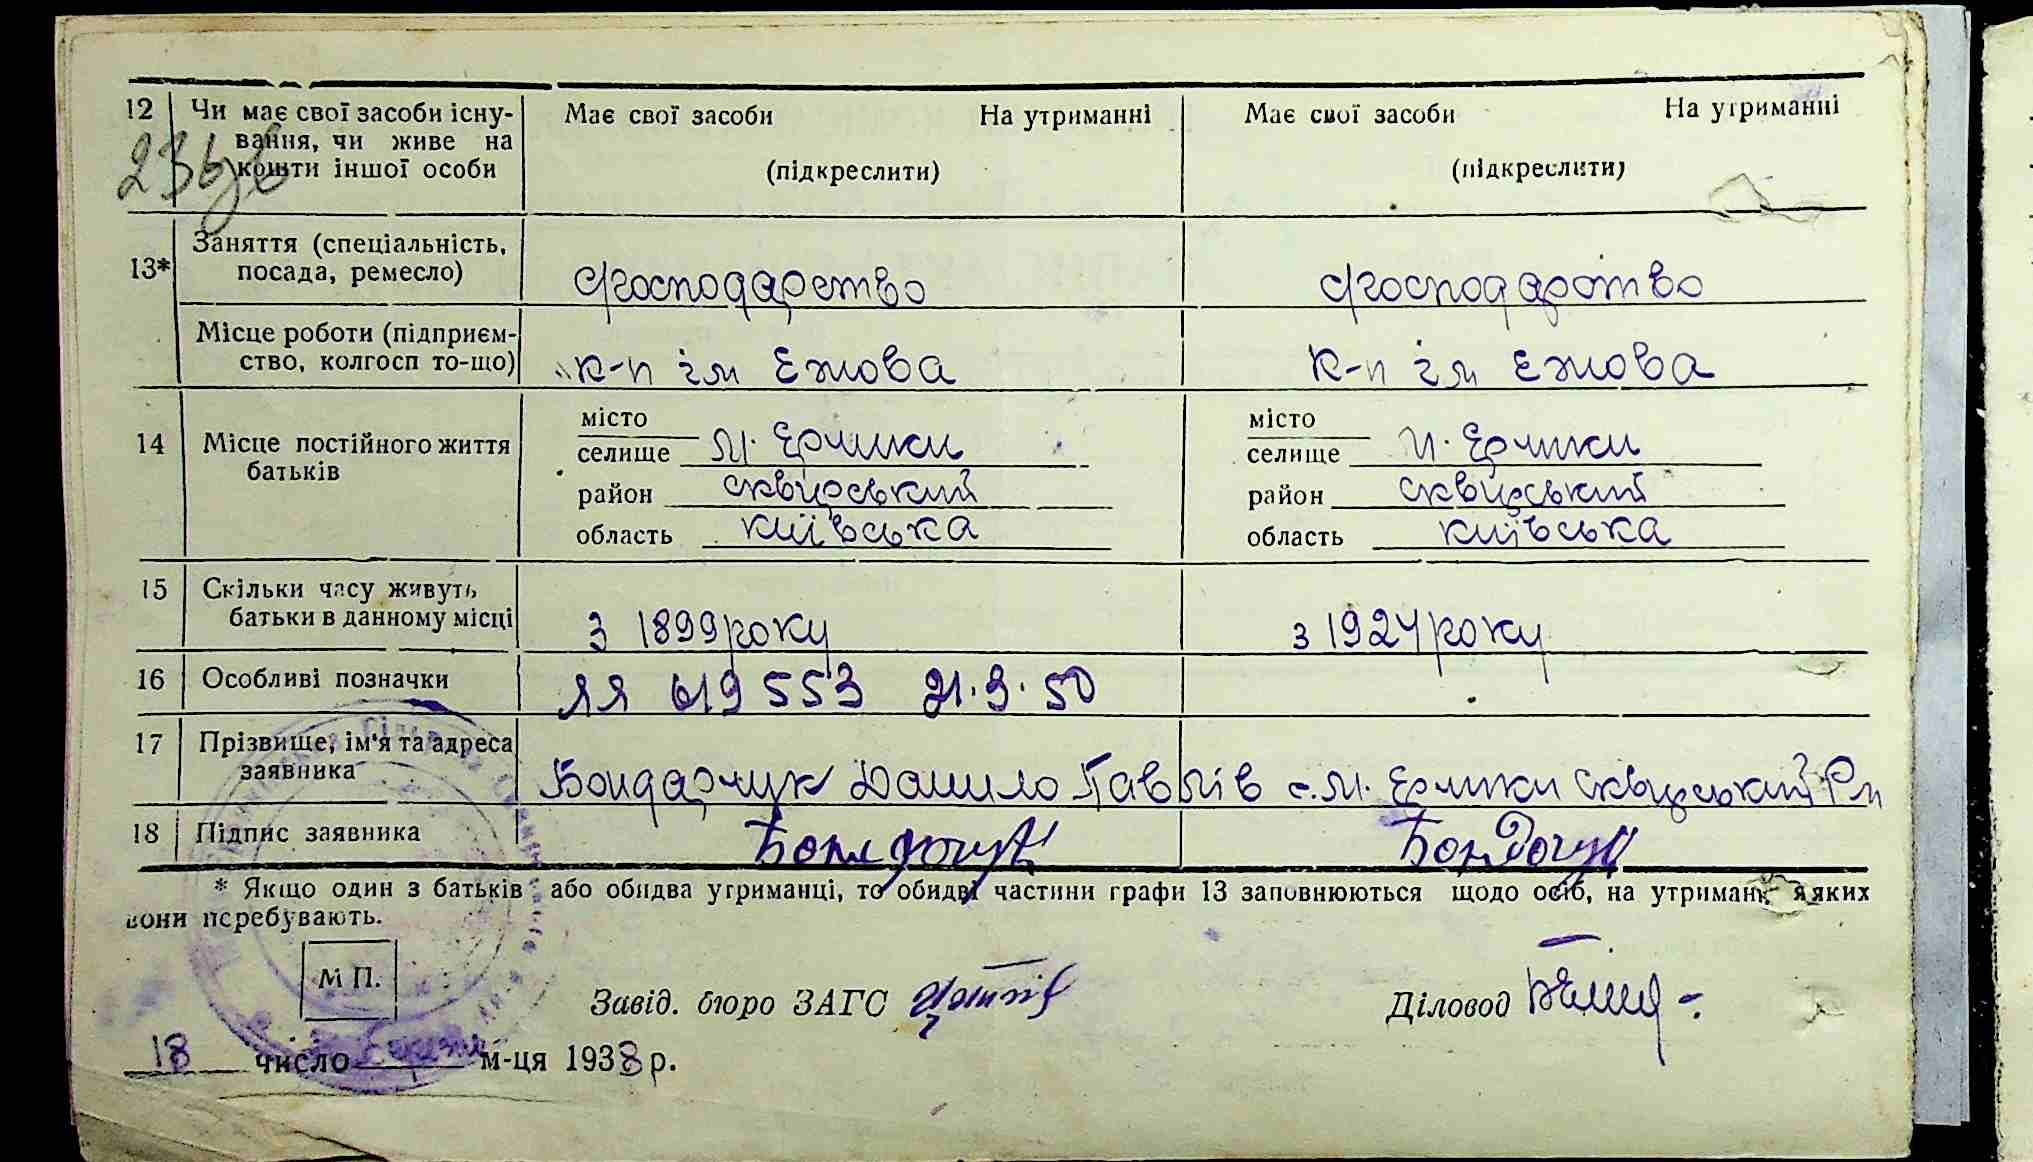 12 Чи має свої засоби існу- Має свої засоби На утриманні Має свої засоби На утриманні
вання, чи живе на
кошти іншої особи (підкреслити) (підкреслити)
13* Заняття (спеціальність,
посада, ремесло) с/господарство с/господарство
Місце роботи (підприєм-
ство, колгосп то-що) к-п ім Ежова к-п ім Ежова
місто місто
14 Місце постійного життя селище М. Єрчики селище М. Єрчики
батьків район сквирський район сквирський
область київська область київська
15 Скільки часу живуть
батьки в данному місці з 1899 року з 1924 року
16 Особливі позначки ЯЯ 619553 21.3.50
17 Прізвище, ім'я та адреса
заявника Бондарчук Данило Гаврлів с. М. Єрчики Сквирський Рн
18 Підпис заявника Бондарчук Бондарчук
* Якщо один з батьків або обидва утриманці, то обидві частини графи 13 заповнюються щодо осіб, на утриманні яких
вони перебувають.
М П.
Завід. бюро ЗАГС Діловод
18 число м-ця 1938 р.